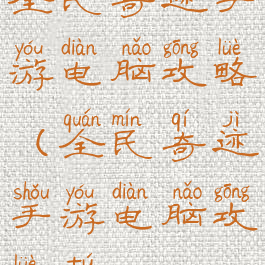 全民奇迹手
yóu diàn nǎo gōng lüè
游电脑攻略
quán mín qí jì
（全民奇迹
shǒu yóu diàn nǎo gōng
手游电脑攻
lüè